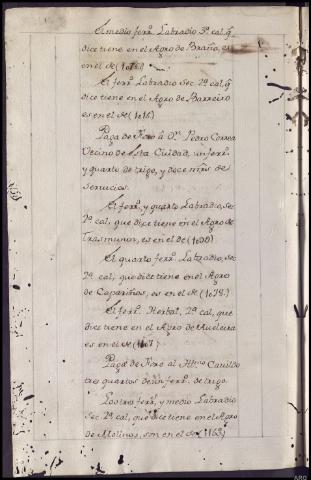 El medio ferr.º Labradio 3.ª cal. q.
dice tiene en el Agro de Braño, es
en el de
El ferr.º Labradio Sec. 2.ª cal. q.
dice tiene en el Agro de Barreiro
es en el de (1016)
Paga de Foro á D.n Pedro Correa
Vecino de esta Ciudad, un ferr.º
y quarto de trigo, y doce mrs. de
servicios.
El ferr.º y quarto Labradio, Sec.
2.ª cal, que dice tiene en el Agro de
Trasmunor, es en el de
El quarto ferr.º Labradio, Sec.
2.ª cal, que dice tiene en el Agro
de Capariños, es en el de (1078.)
El ferr.º Herbal, 2.ª cal, que
dice tiene en el Agro de
es en el de
Paga de Foro al Ill.mo Cavildo
tres quartos de un ferr.º de trigo.
Los tres ferr.s y medio Labradio
Sec. 2.ª cal, que dice tiene en el Agro
de Molinos, son en el de (1163)
ARQ